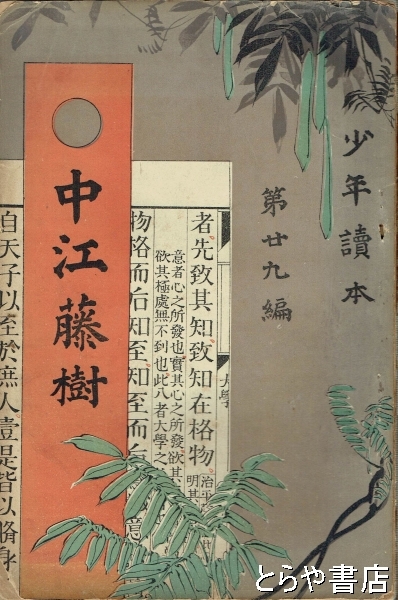 少年讀本
第廿九編
中江藤樹
大學
者先致其知致知在格物
治平
明其
意者心之所發也實其心之所發欲其
欲其極處無不到也此八者大學之
物格而后知至知至而后意
自天子以至於庶人壹是皆以脩身
とらや書店